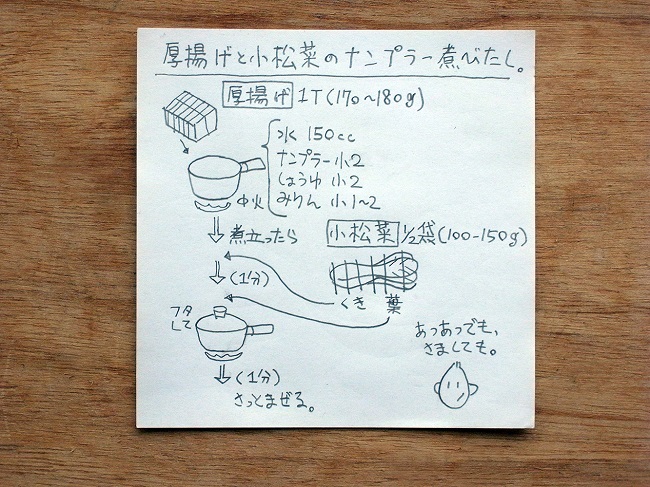 厚揚げと小松菜のナンプラー煮びたし。
厚揚げ 1丁(170〜180g)
水 150cc
ナンプラー 小2
しょうゆ 小2
みりん 小1〜2
中火
煮立ったら
小松菜 1/2袋(100-150g)
(1分)
くき 葉
フタして
(1分)
さっとまぜる。
あつあつでも、
さましても。